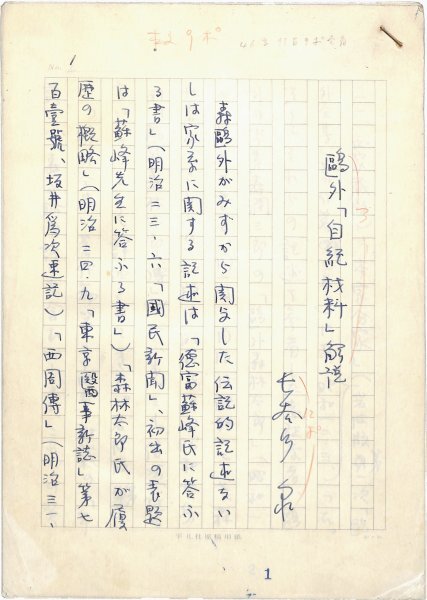 No. 1
鷗外「自紀材料」解説
長谷川 泉
森鷗外がみずから関与した伝説的記述ない
しは家系に関する記述は「德富蘇峰氏に答ふ
る書」(明治二三・六「國民新聞」、初出の表題
は「蘇峰先生に答ふる書」)「森林太郎氏が履
歴の概略」(明治二四・九「東京醫事新誌」第七
百壹號、坂井爲次速記)「西周傳」(明治三一・
平凡社原稿用紙
1